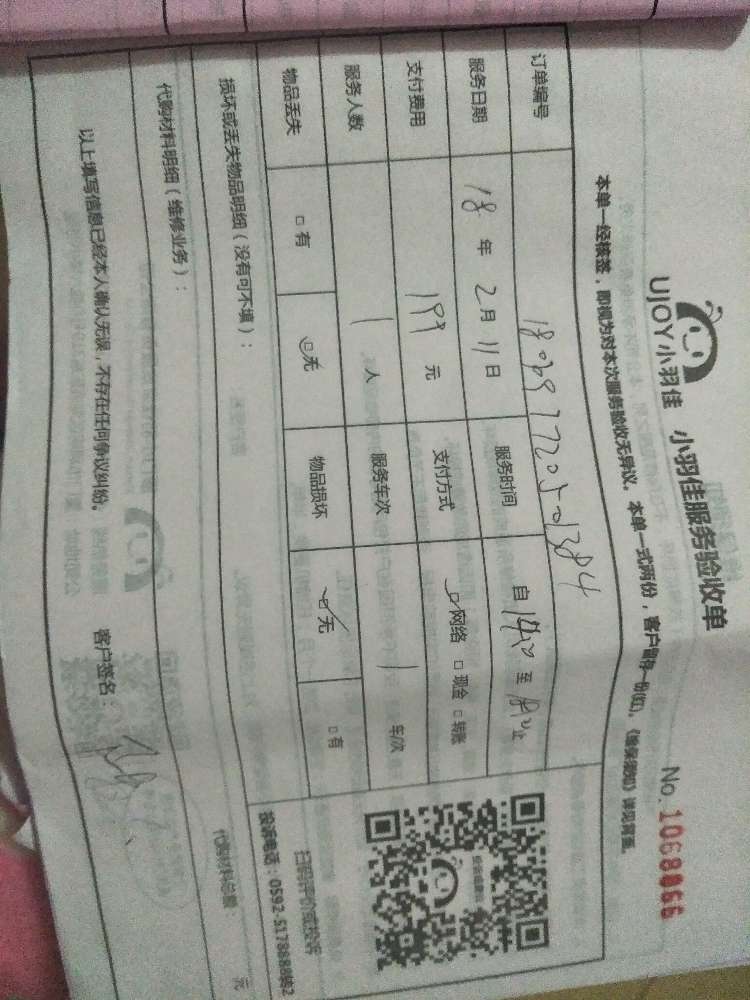 UJOY小羽佳 小羽佳服务验收单 No. 1068066
本单一经核签，即视为对本次服务验收无异议。本单一式两份，客户留存一份(红)。《维保须知》详见背面。
订单编号
服务日期 18 年 2 月 11 日 服务时间 自 至
支付费用 199 元 支付方式 网络 □ 现金 □ 转账
服务人数 1 人 服务车次 1 车/次
物品丢失 □ 有 无 物品损坏 无 □ 有
损坏或丢失物品明细（没有可不填）：
代购材料明细（维修业务）： 代购材料总额： 元
以上填写信息已经本人确认无误，不存在任何争议纠纷。 客户签名：
扫码评价或投诉
投诉电话：0592-5178688转2